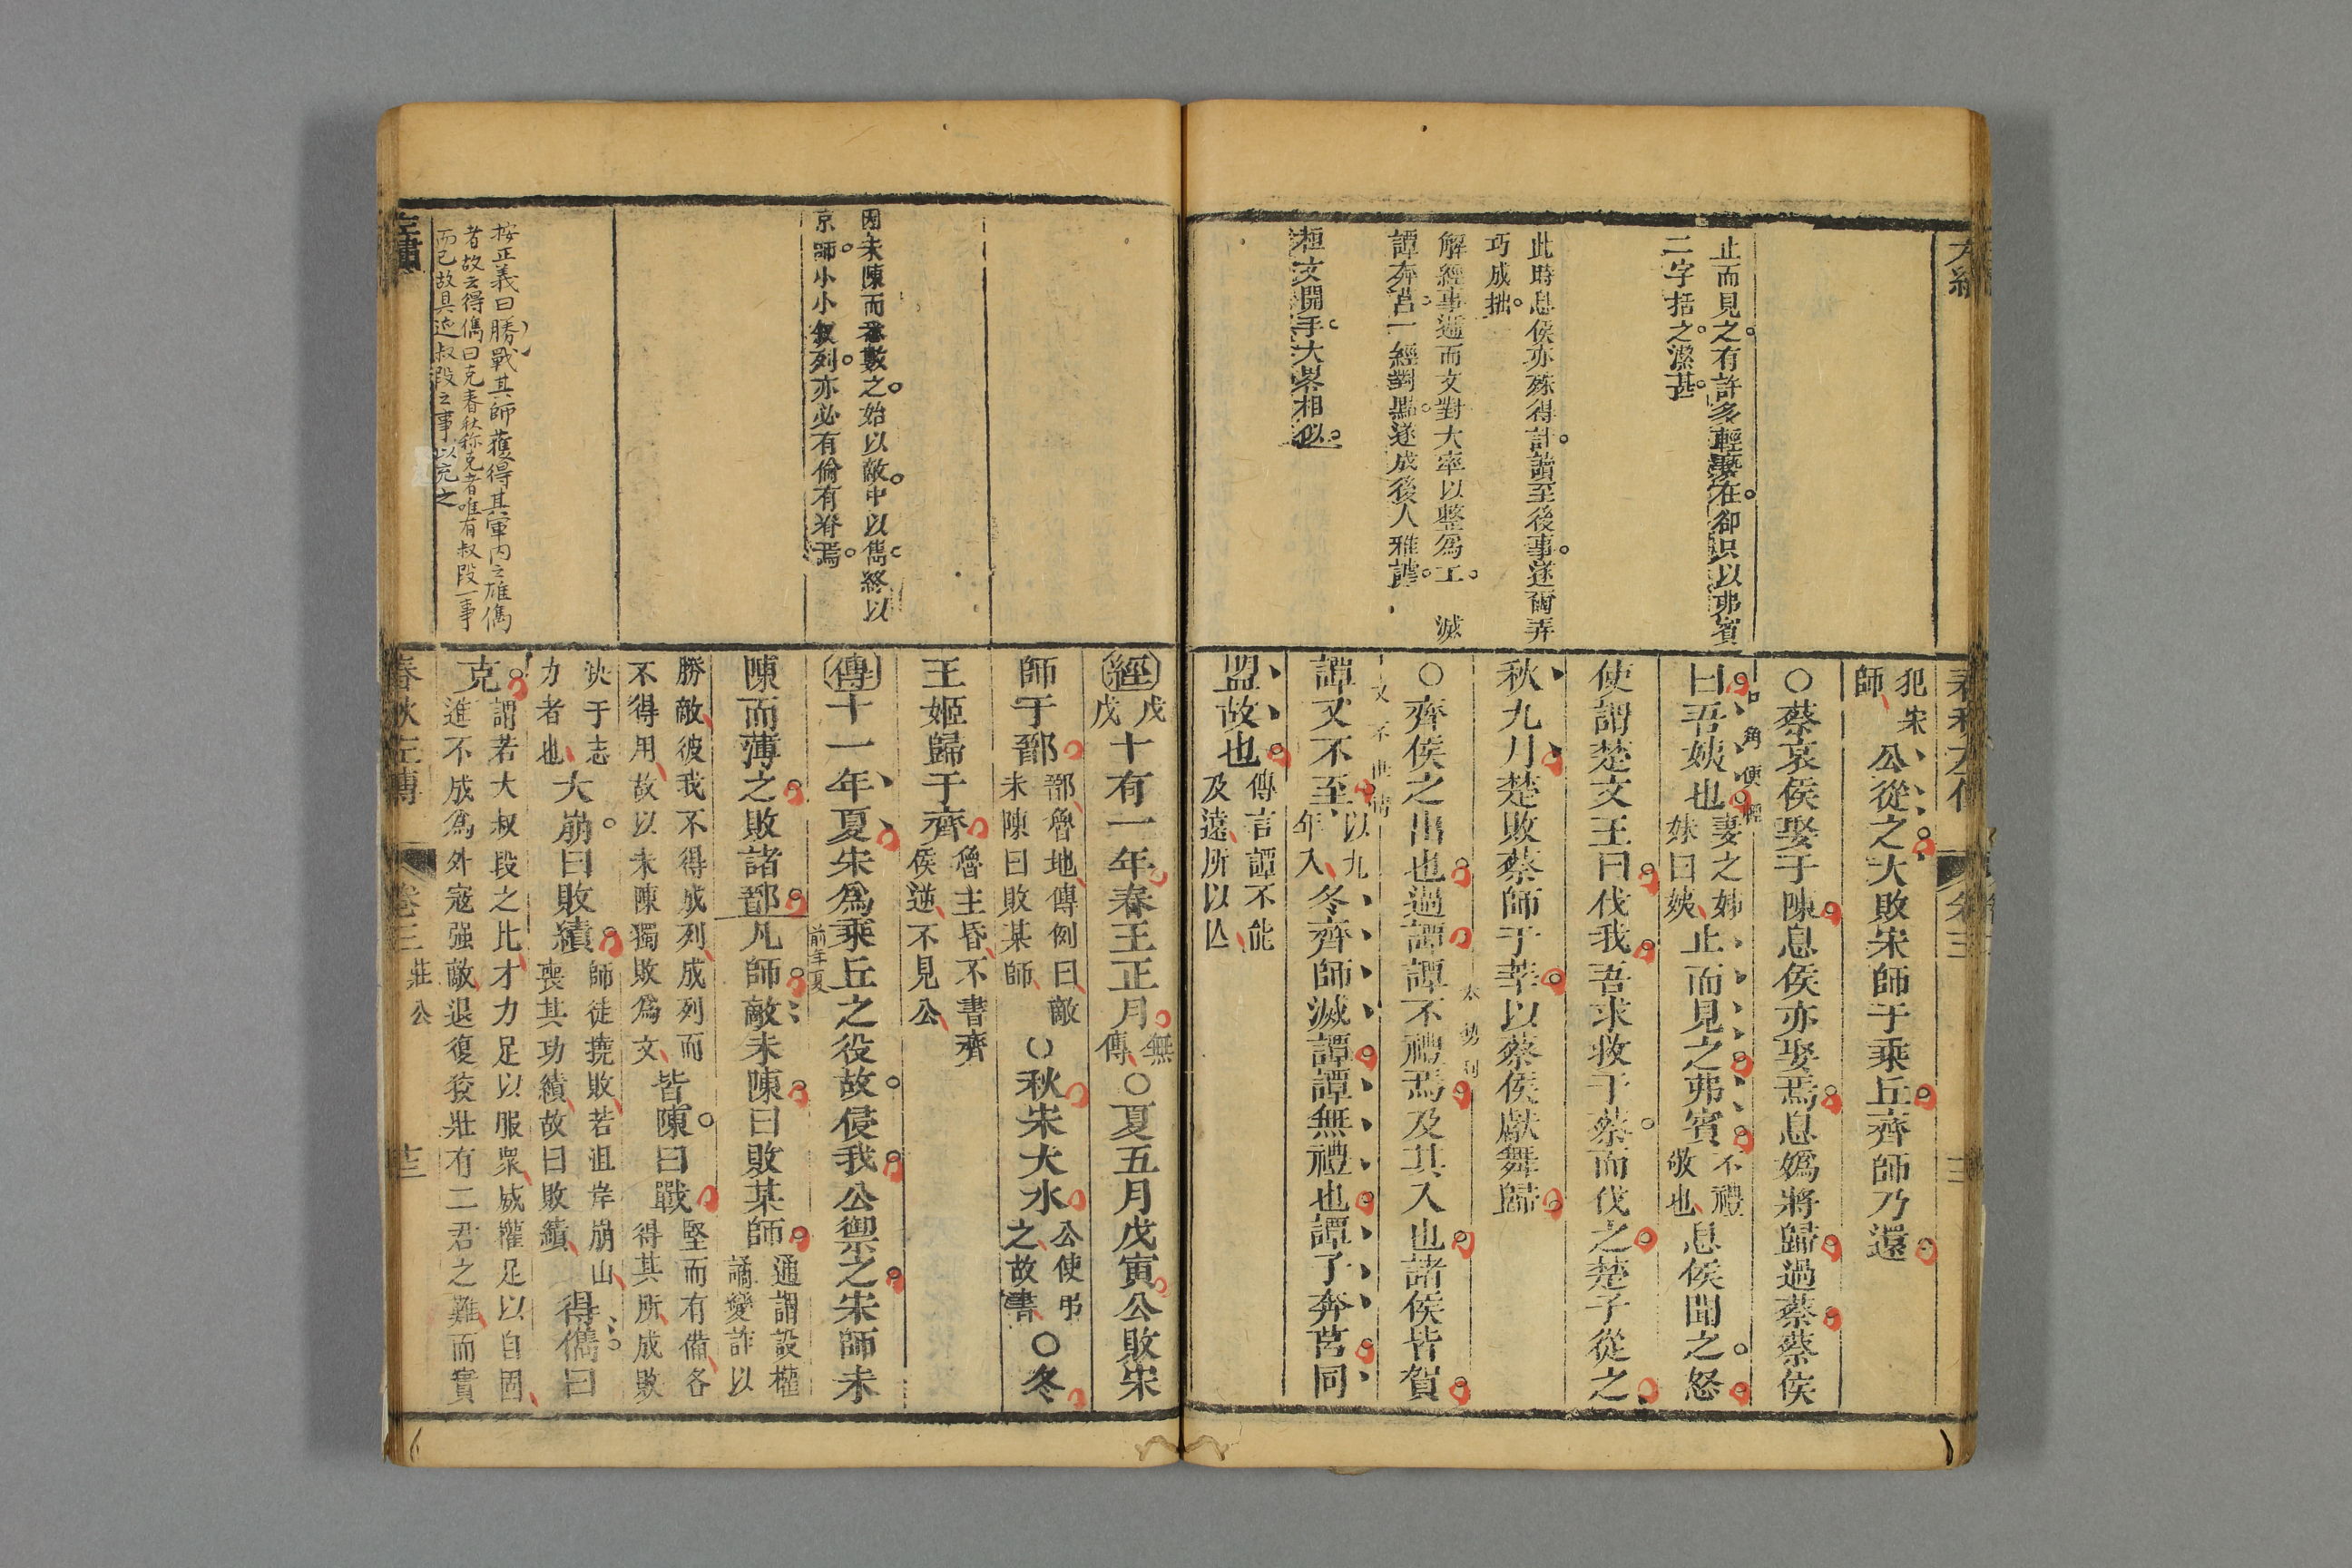 止而見之有許多輕褻在卻只以弗賓
二字括之潔甚
此時息侯亦殊得計讀至後事遂爾弄
巧成拙
解經事遞而文對大率以整為工 滅
譚奔莒一經對點遂成後人雅謔
桓文開手大畧相似
犯宋
師
公從之大敗宋師于乘丘齊師乃還
○蔡哀侯娶于陳息侯亦娶焉息媯將歸過蔡蔡侯
口角便輕
曰吾姨也妻之姊妹曰姨止而見之弗賓不禮敬也息侯聞之怒
使謂楚文王曰伐我吾求救于蔡而伐之楚子從之
秋九月楚敗蔡師于莘以蔡侯獻舞歸
○齊侯之出也過譚譚不禮焉及其入也諸侯皆賀
又不世情
譚又不至以九年入冬齊師滅譚譚無禮也譚子奔莒同
盟故也傳言譚不能及遠所以亡
因未陳而番數之始以敵中以雋終以
京師小小叙列亦必有倫有脊焉
按正義曰勝戰其師獲得其軍內之雄儁
者故云得儁曰克春秋称克者唯有叔段一事
而已故具述叔段之事以充之
經戊戌十有一年春王正月無傳○夏五月戊寅公敗宋
師于鄑鄑魯地傳例曰敵未陳曰敗某師○秋宋大水公使弔之故書○冬
王姬歸于齊魯主昏不書齊侯逆不見公
傳十一年夏宋為乘丘之役故侵我公禦之宋師未
前年夏
陳而薄之敗諸鄑凡師敵未陳曰敗某師通謂設權譎變詐以
勝敵彼我不得成列成列而不得用故以未陳獨敗為文皆陳曰戰堅而有備各得其所成敗
決于志力者也大崩曰敗績師徒撓敗若沮岸崩山喪其功績故曰敗績得儁曰
克謂若大叔段之比才力足以服衆威權足以自固進不成為外寇強敵退復狡壯有二君之難而實
春秋左傳 卷三 莊公 十三